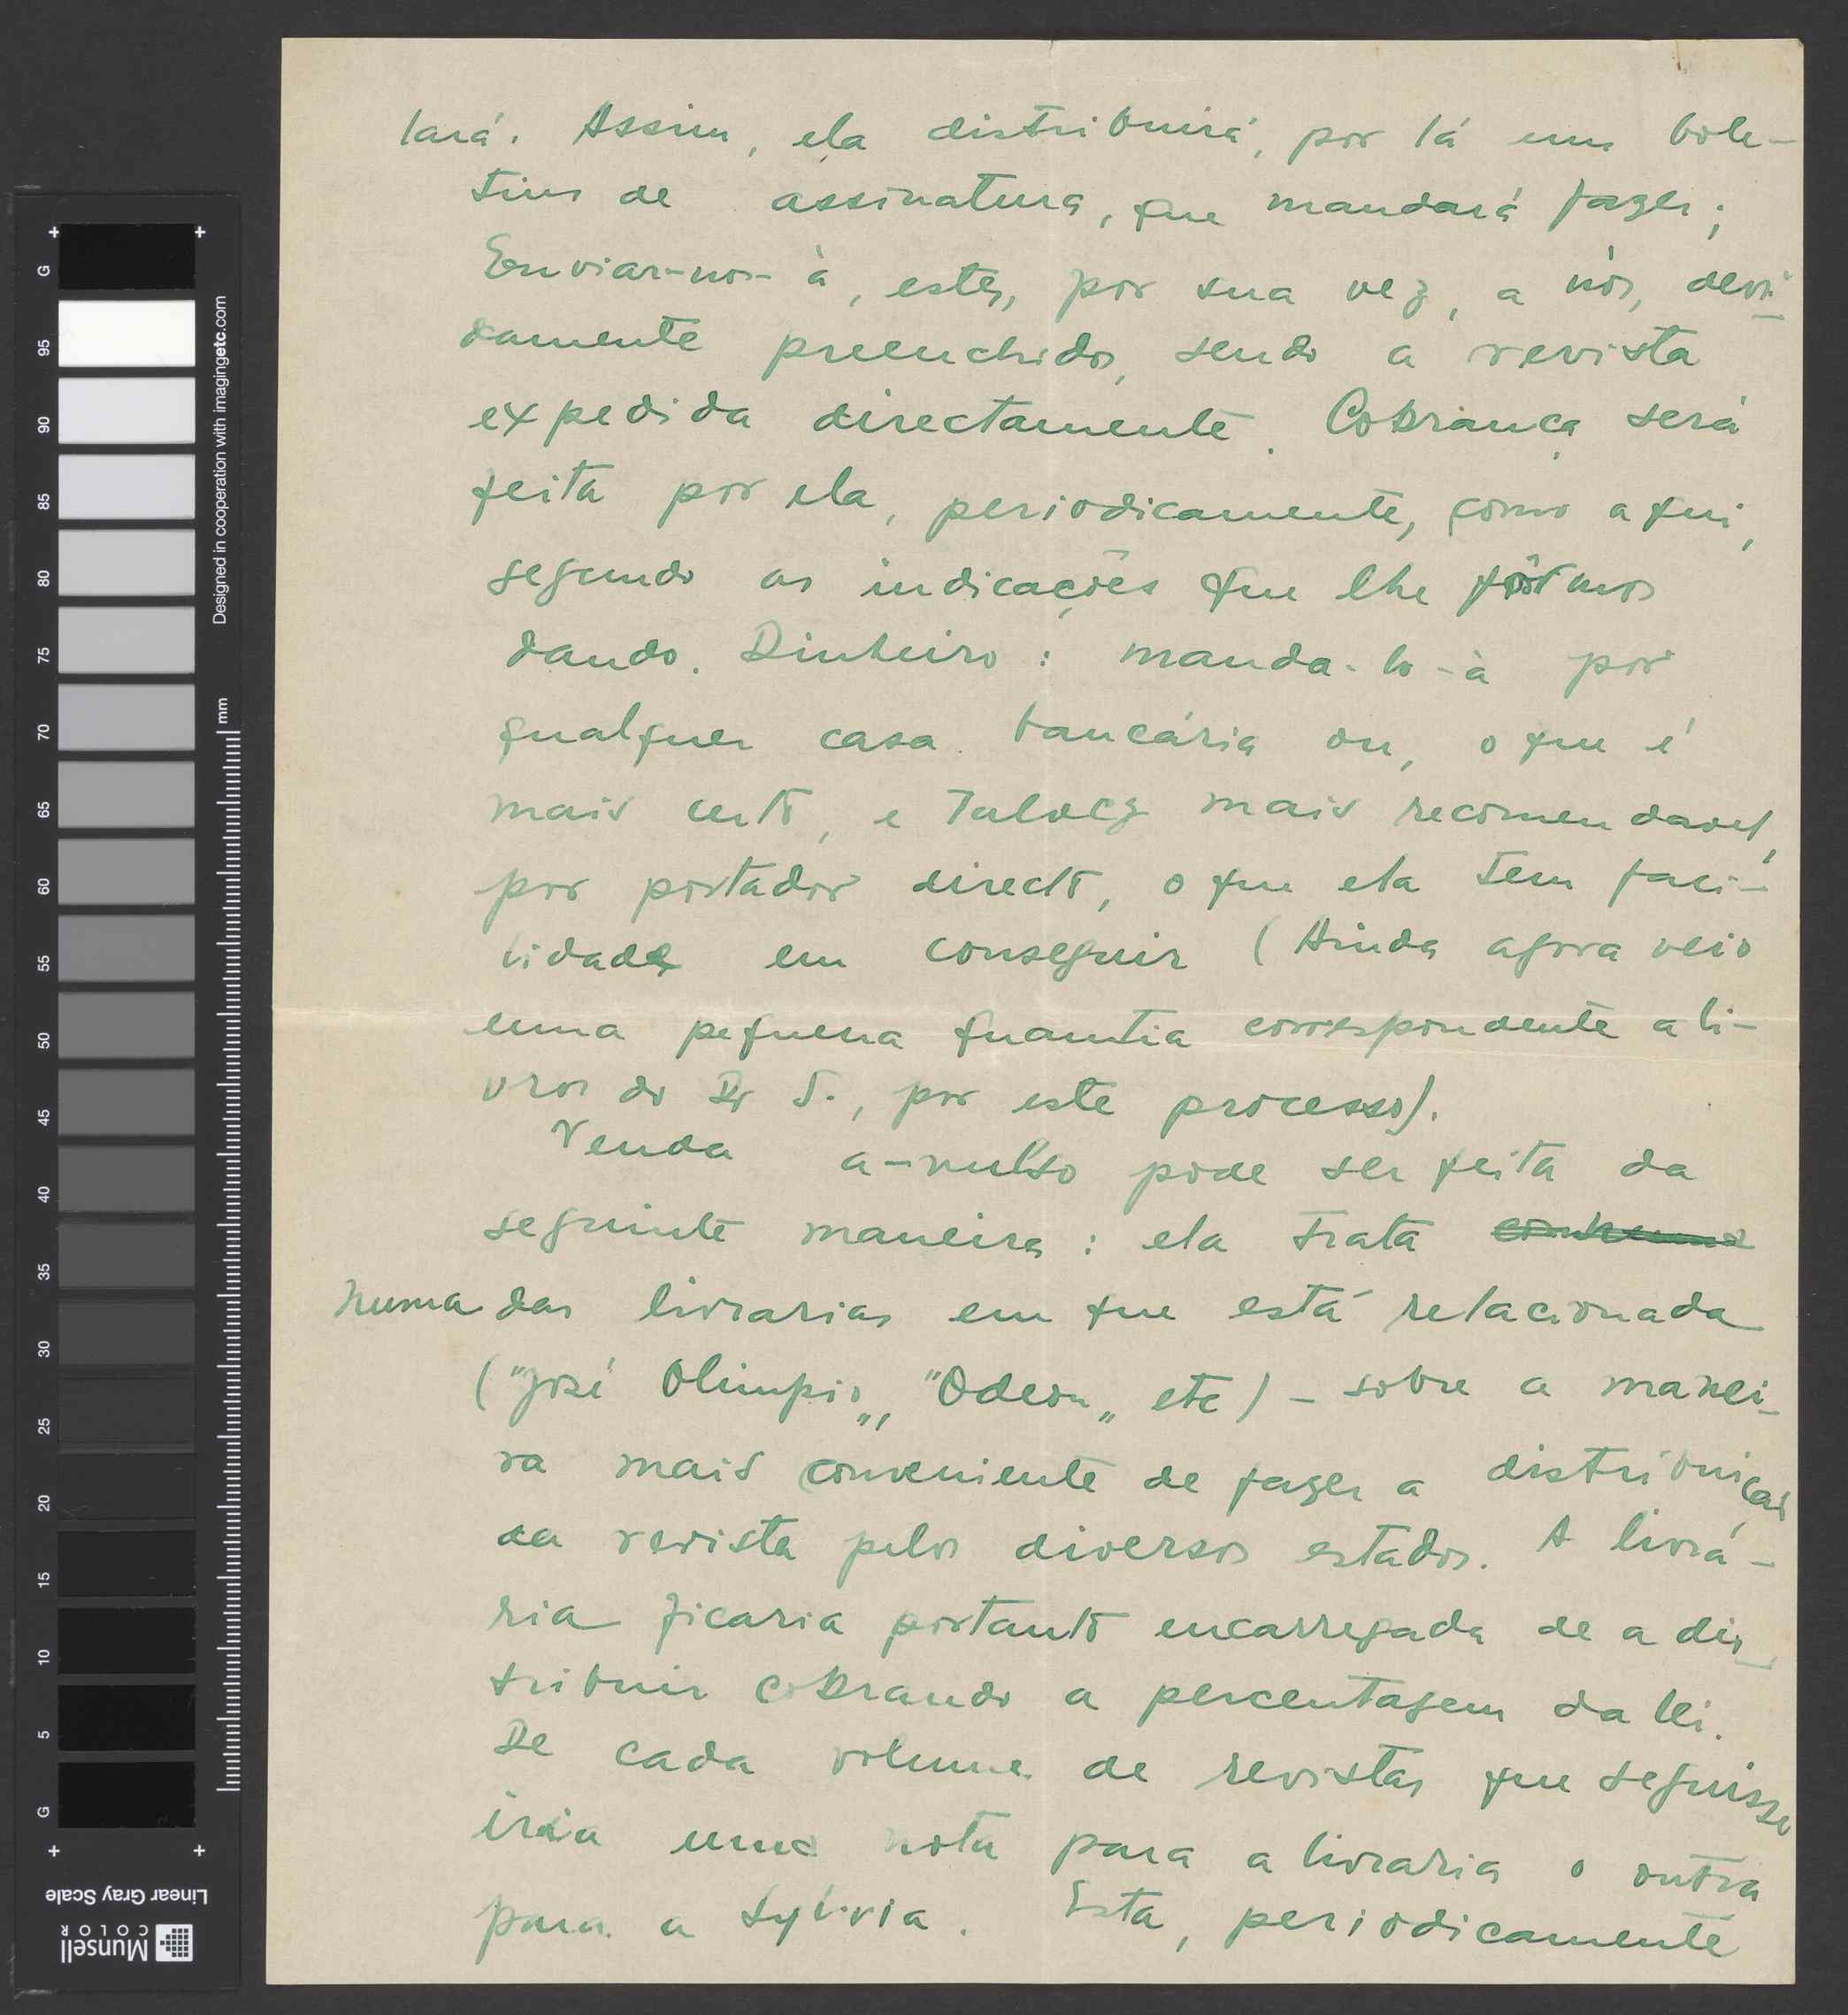 lará. Assim, ela distribuirá, por lá uns bole-
tins de assinatura, que mandará fazer;
Enviar-nos-à, estes, por sua vez, a nós, devi-
damente preenchidos, sendo a revista
expedida directamente. Cobrança será
feita por ela, periodicamente, como aqui,
segundo as indicações que lhe fôrmos
dando. Dinheiro: manda-lo-à por
qualquer casa bancária ou, o que é
mais certo, e talvez mais recomendavel,
por portador directo, o que ela tem faci-
lidade em conseguir (Ainda agora veio
uma pequena quantia correspondente a li-
vros do Dr S., por este processo).
Venda a-vulso pode ser feita da
seguinte maneira: ela trata
numa das livrarias em que está relacionada
("José Olimpio„, "Odeon„ etc) - sobre a manei-
ra mais conveniente de fazer a distribuição
da revista pelos diversos estados. A livrá-
ria ficaria portanto encarregada de a dis-
tribuir cobrando a percentagem da lei.
De cada volume de revistas que seguisse
iria uma nota para a livraria e outra
para a Sylvia. Esta, periodicamente
G
95
90
85
80
75
70
65
60
55
50
45
40
35
30
25
20
15
10
5
G
mm
Designed in cooperation with imagingetc.com
Linear Gray Scale
Munsell
COLOR